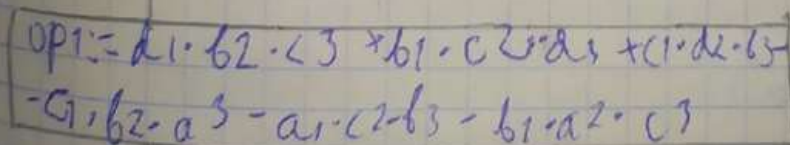 OP1:=d1·b2·c3+b1·c2·d3+c1·d2·b3-
-c1·b2·a3-a1·c2·b3-b1·a2·c3